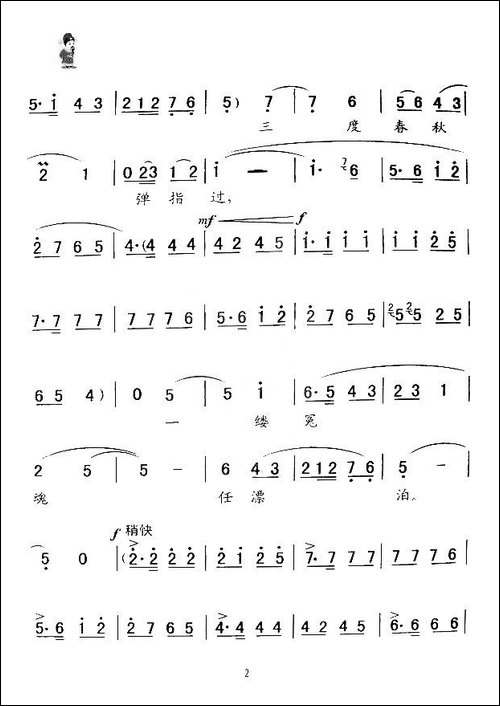 5· i 4 3 | 2 1 2 1 2 7 6 | 5 ) 7 | 7 6 | 5 6 4 3
三 度 春 秋
2 1 | 0 2 3 1 2 | i — | i · 6 | 5 · 6 i 2
弹 指 过,
mf f
2 7 6 5 | 4 · ( 4 4 4 | 4 2 4 5 | i · i i i | i i 2 5
7 · 7 7 7 | 7 7 7 6 | 5 · 6 i 2 | 2 7 6 5 | 5 5 2 5
6 5 4 ) | 0 5 | 5 i | 6 · 5 4 3 | 2 3 1
一 缕 冤
2 5 | 5 – | 6 4 3 | 2 1 2 7 6 | 5 –
魂 任 漂 泊。
f 稍快
5 0 | ( 2 · 2 2 2 | 2 i 2 5 | 7 · 7 7 7 | 7 7 7 6
5 · 6 i 2 | 2 7 6 5 | 4 · 4 4 4 | 2 4 4 5 | 6 · 6 6 6
2